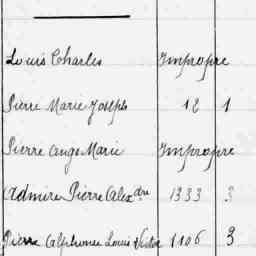 Louis Charles Impropre
Pierre Marie Joseph 12 1
Pierre Ange Marie Impropre
Admire Pierre Alexdre 1333 3
Pierre Alphonse Louis Victor 1106 3